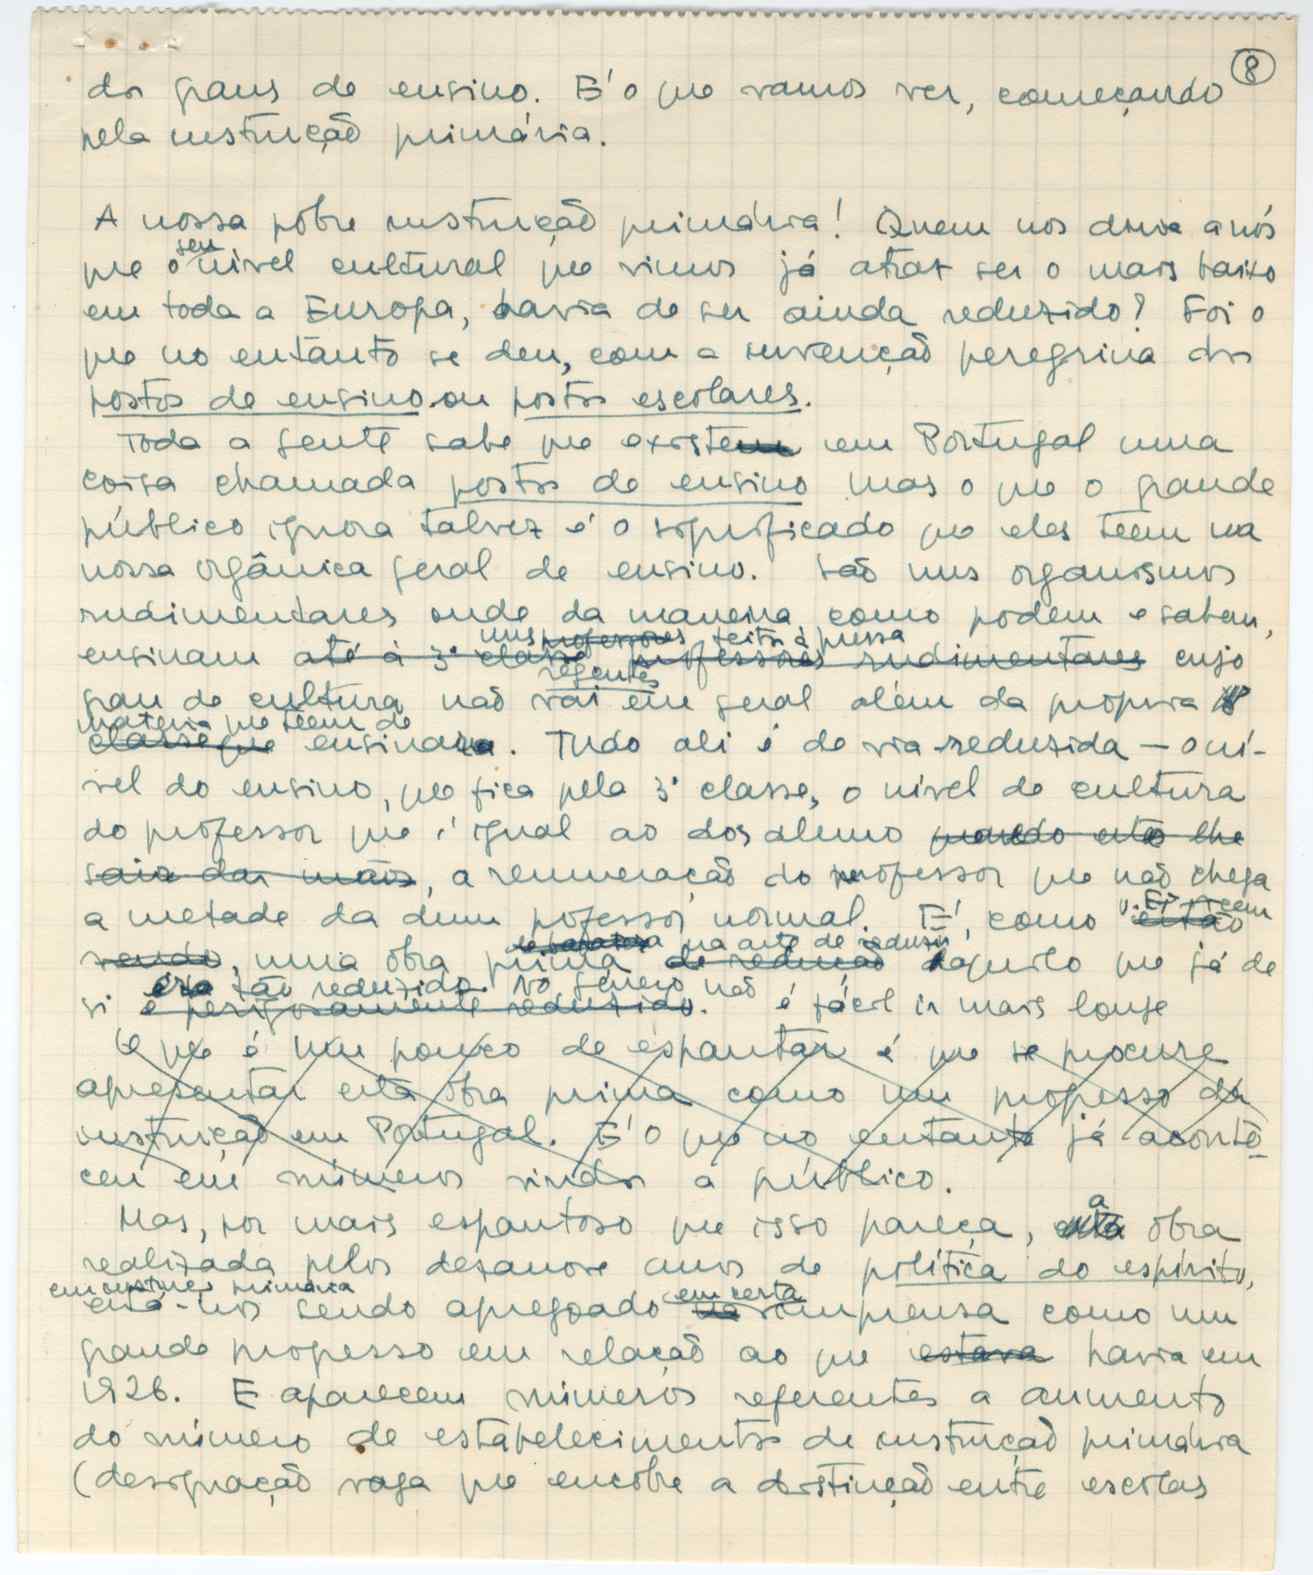 8
dos graus de ensino. E' o que vamos ver, começando
pela instrução primária.
A nossa pobre instrução primária! Quem nos diria a nós
que o seu nível cultural que vimos já atraz ser o mais baixo
em toda a Europa, havia de ser ainda reduzido? Foi o
que no entanto se deu, com a invenção peregrina dos
postos de ensino ou postos escolares.
Toda a gente sabe que existem em Portugal uma
coisa chamada postos de ensino mas o que o grande
público ignora talvez é o significado que eles teem na
nossa orgânica geral de ensino. São uns organismos
rudimentares onde da maneira como podem e sabem,
uns professores feitos à pressa
ensinam até à 3ª classe professores rudimentares cujo
regentes
grau de cultura não vai em geral além da propria
materia que teem de
classe que ensinar. Tudo ali é de via reduzida — o ní-
vel do ensino, que fica pela 3ª classe, o nível de cultura
do professor que é igual ao dos aluno quando estes lhe
saia das mãos, a remuneração do professor que não chega
a metade da dum professor normal. E', como v. Ex.as veem estão
na arte de reduzir
vendo, uma obra prima de redução daquilo que já de
era tão reduzido. No género não
si é perigosamente reduzido. é fácil ir mais longe
O que é um pouco de espantar é que se procure
apresentar esta obra prima como um progresso da
instrução em Portugal. E' o que no entanto já aconte
ceu em números vindos a público.
Mas, por mais espantoso que isso pareça, esta a obra
realizada pelos desanove anos de política do espírito,
em instrução primária
está-nos sendo apregoado na em certa imprensa como um
grande progresso em relação ao que estava havia em
1926. E aparecem números referentes a aumento
do número de estabelecimentos de instrução primária
(designação vaga que encobre a distinção entre escolas